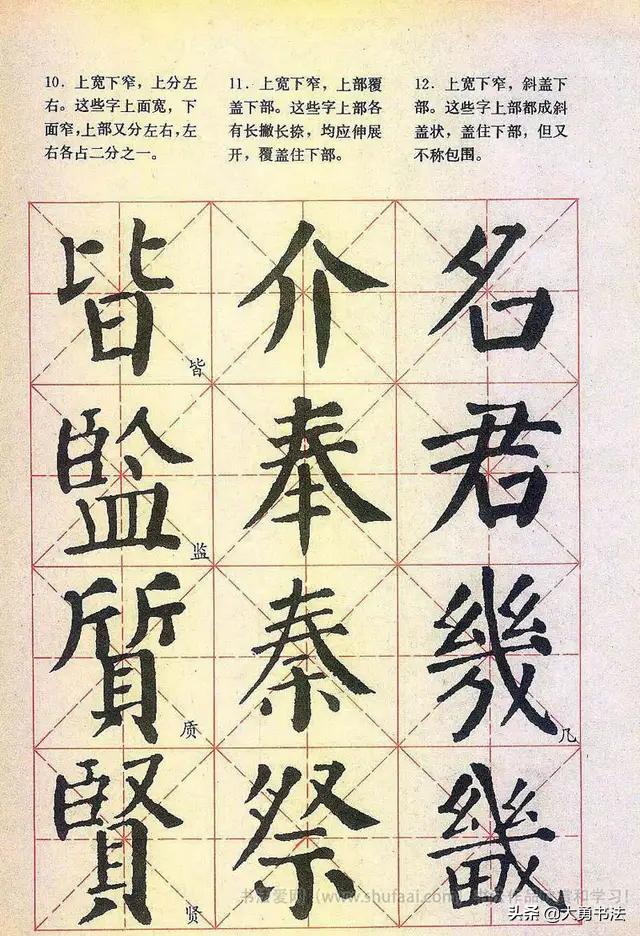 10．上宽下窄，上分左
右。这些字上面宽，下
面窄，上部又分左右，左
右各占二分之一。
11．上宽下窄，上部覆
盖下部。这些字上部各
有长撇长捺，均应伸展
开，覆盖住下部。
12．上宽下窄，斜盖下
部。这些字上部都成斜
盖状，盖住下部，但又
不称包围。
皆 介 名
皆
監 奉 君
监
質 秦 幾
质 几
賢 祭 畿
贤
书法爱网（www.shufaai.com）
作品欣赏和学习！
头条 @大勇书法